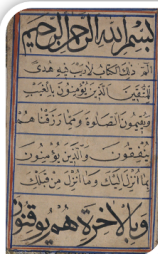 بسم الله الرحمن الرحيم
الم ذلك الكتاب لا ريب فيه هدى
للمتقين الذين يؤمنون بالغيب
ويقيمون الصلوة ومما رزقناهم
ينفقون والذين يؤمنون
بما انزل اليك وما انزل من قبلك
وبالاخرة هم يوقنون